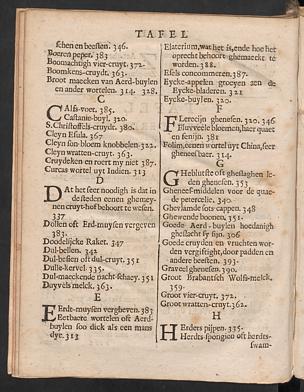 TAFEL
schen en beesten. 346.
Boeren peper. 383
Boomachtigh vier-cruyt. 372.
Boomkens-cruydt. 363.
Broot maecken van Aerd-buylen
en ander wortelen. 314. 328.
C
CAlfs-voet. 385.
Castanie-buyl. 320.
S. Christoffels-cruydt. 380.
Cleyn Esula. 367
Cleyn son-bloem knobbelen. 322.
Cleyn wratten-cruyt. 363.
Cruydeken en roert my niet 387.
Curcas wortel uyt Indien. 313
D
DAt het seer noodigh is dat in
de steden eenen ghemey-
nen cruyt-hof behoort te wesen.
337
Dollen oft Erd-muysen vergeven
383.
Doodelijcke Raket. 347
Dul-besien. 342
Dul-besien oft dul-cruyt. 351
Dulle-kervel. 335.
Dul-maeckende nacht-schaey. 351
Duyvels melck. 363.
E
EErdt-muysen vergheven. 383
Eetbaere wortelen oft Aerd-
buylen soo dick als een mans
dye. 313
Elaterium, wat het is, ende hoe het
oprecht behoort ghemaeckt te
worden. 388.
Esels concommeren. 387.
Eycke-appelen groeyen aen de
Eycke-bladeren. 321
Eycke-buylen. 320.
F
FLerecijn ghenesen. 320. 346
Fluweele bloemen, haer quaet
en fenijn. 381
Folim, eenen wortel uyt China, seer
gheneel baer. 314.
G
GHebluste oft gheslaghen le-
den ghenesen. 353
Ghenees-middelen voor de quae-
de petercelie. 340.
Ghevlamde sots cappen. 348
Ghewende boonen. 351.
Goede Aerd-buylen hoedanigh
gheslacht sy sijn. 306
Goede cruyden en vruchten wor-
den vergiftigh, door padden en
andere beesten. 393.
Graveel ghenesen. 390.
Groot Brabantsch Wolfs-melck.
359.
Groot vier-cruyt. 372.
Groot wratten-cruyt. 362.
H
HErders pijpen. 335.
Herdts-spongien oft herdts-
swam-